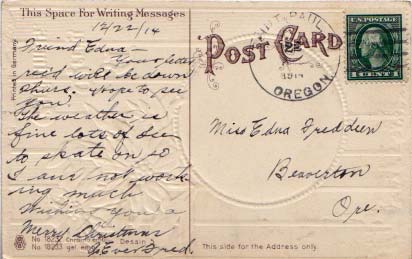 This Space For Writing Messages
12/22/14
Friend Edna –
Your letter
rec'd will be down
thurs. Hope to see
you.
The weather is
fine lots of ice
to skate on so
I am not work
ing much
Wishing you a
Merry Christmas
Printed in Germany
No. 18223
No. 18233 gel.
Dessin
POST CARD
ST. PAUL
22
1914
OREGON
U.S. POSTAGE
1 CENT 1
Miss Edna
Beaverton
Ore.
This side for the Address only.